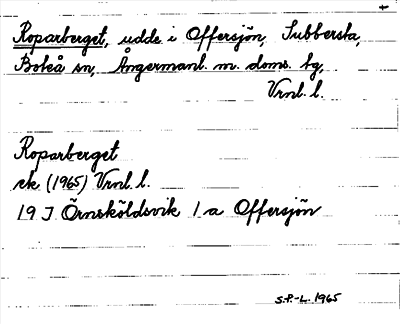 Roparberget, udde i Offersjön, Subbersta,
Boteå sn, Ångermanl. m. doms. lg,
Vrnl. l.
Roparberget
ek (1965) Vrnl. l.
19 J Örnsköldsvik 1 a Offersjön
S.P.-L. 1965